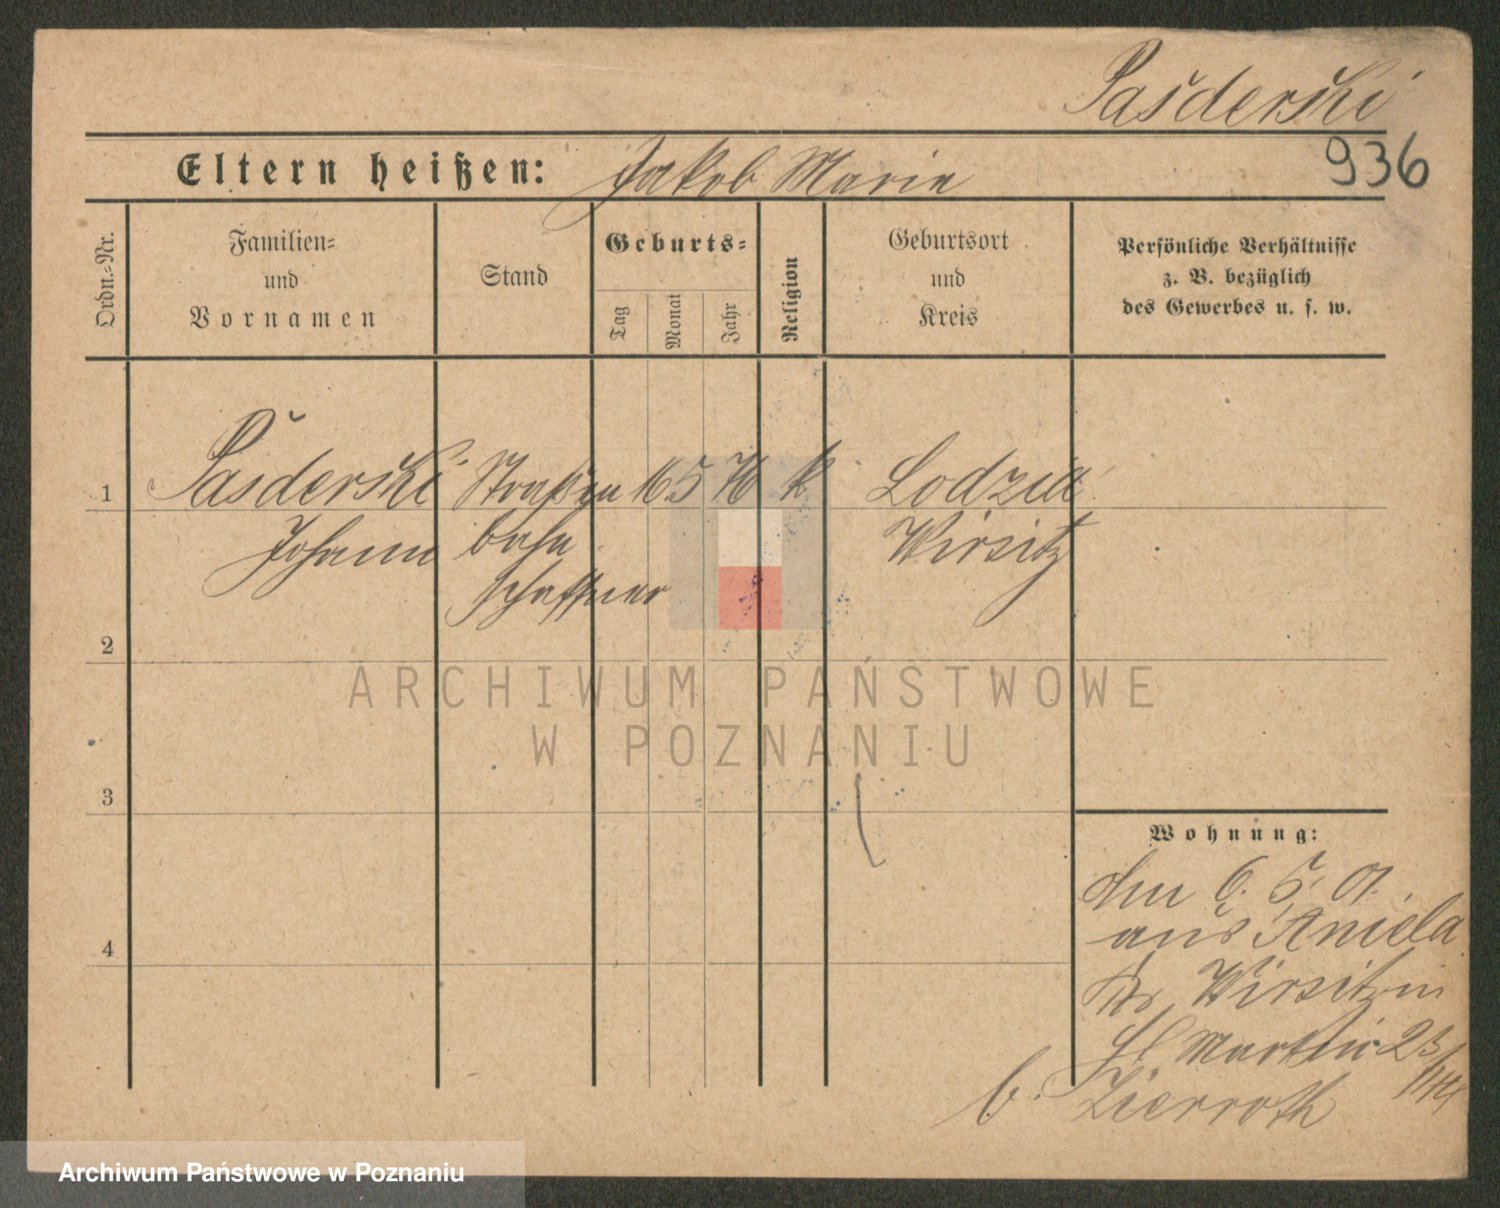 Pasderski
Eltern heißen: Jakob Marie
936
Ordn.=Nr.
Familien=
und
Vornamen
Stand
Geburts=
Tag
Monat
Jahr
Religion
Geburtsort
und
Kreis
Persönliche Verhältnisse
z. B. bezüglich
des Gewerbes u. s. w.
1 Pasderski Straßen 16 5 76 k Lodzia
Johann bahn Wirsitz
schaffner
2
ARCHIWUM PAŃSTWOWE
W POZNANIU
3
Wohnung:
den 6. 5. 01.
aus Aniela
Kr Wirsitz in
St Martin 23
4
b. Zierroth
Archiwum Państwowe w Poznaniu